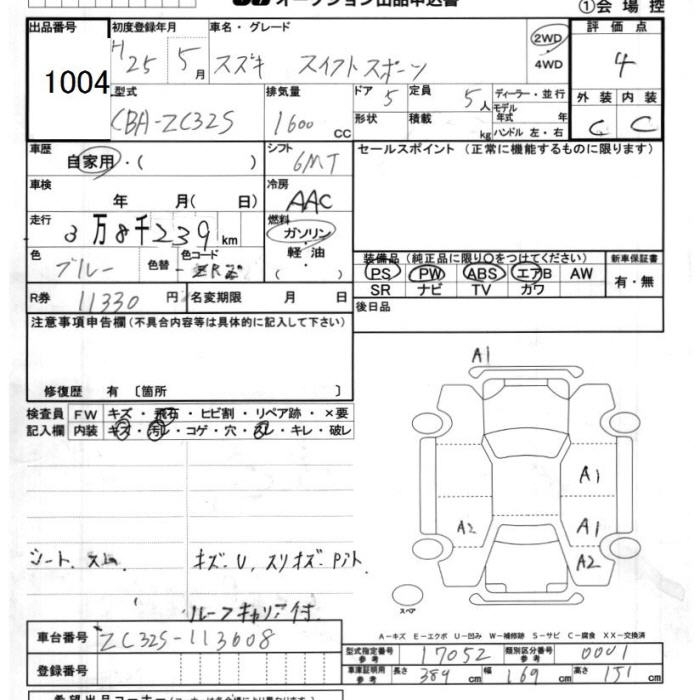 オークション出品申込書
①会場控
出品番号 初度登録年月 車名・グレード 評価点
1004 H25 5月 スズキ スイフトスポーツ 2WD ・ 4WD 4
型式 排気量 ドア 定員 ディーラー・並行 外装 内装
CBA-ZC32S 1600 CC 5 5人 モデル年式 年 C C
形状 積載 kg ハンドル 左・右
車歴 シフト セールスポイント (正常に機能するものに限ります)
自家用・( ) 6MT
車検 冷房
年 月( 日) AAC
走行 燃料
3万8千239km ガソリン・軽油・( )
色 色替 色コード 装備品 (純正品に限り○をつけてください) 新車保証書
ブルー PS PW ABS エアB AW 有・無
SR ナビ TV カワ
R券 11330円 名変期限 月 日 後日品
注意事項申告欄 (不具合内容等は具体的に記入して下さい)
修復歴 有 〔箇所 〕
A1
検査員 FW キズ・飛石・ヒビ割・リペア跡・×要
記入欄 内装 キズ・汚レ・コゲ・穴・スレ・キレ・破レ
A1
A2 A1
A2
シート スレ キズ・U, スリキズ・
ルーフキャリア付
スペア
A-キズ E-エクボ U-凹み W-補修跡 S-サビ C-腐食 XX-交換済
車台番号 ZC32S-113608
型式指定番号 参考 17052 類別区分番号 参考 0001
登録番号 車庫証明用 参考 長さ 389cm 幅 169cm 高さ 151cm
希望出品コーナー